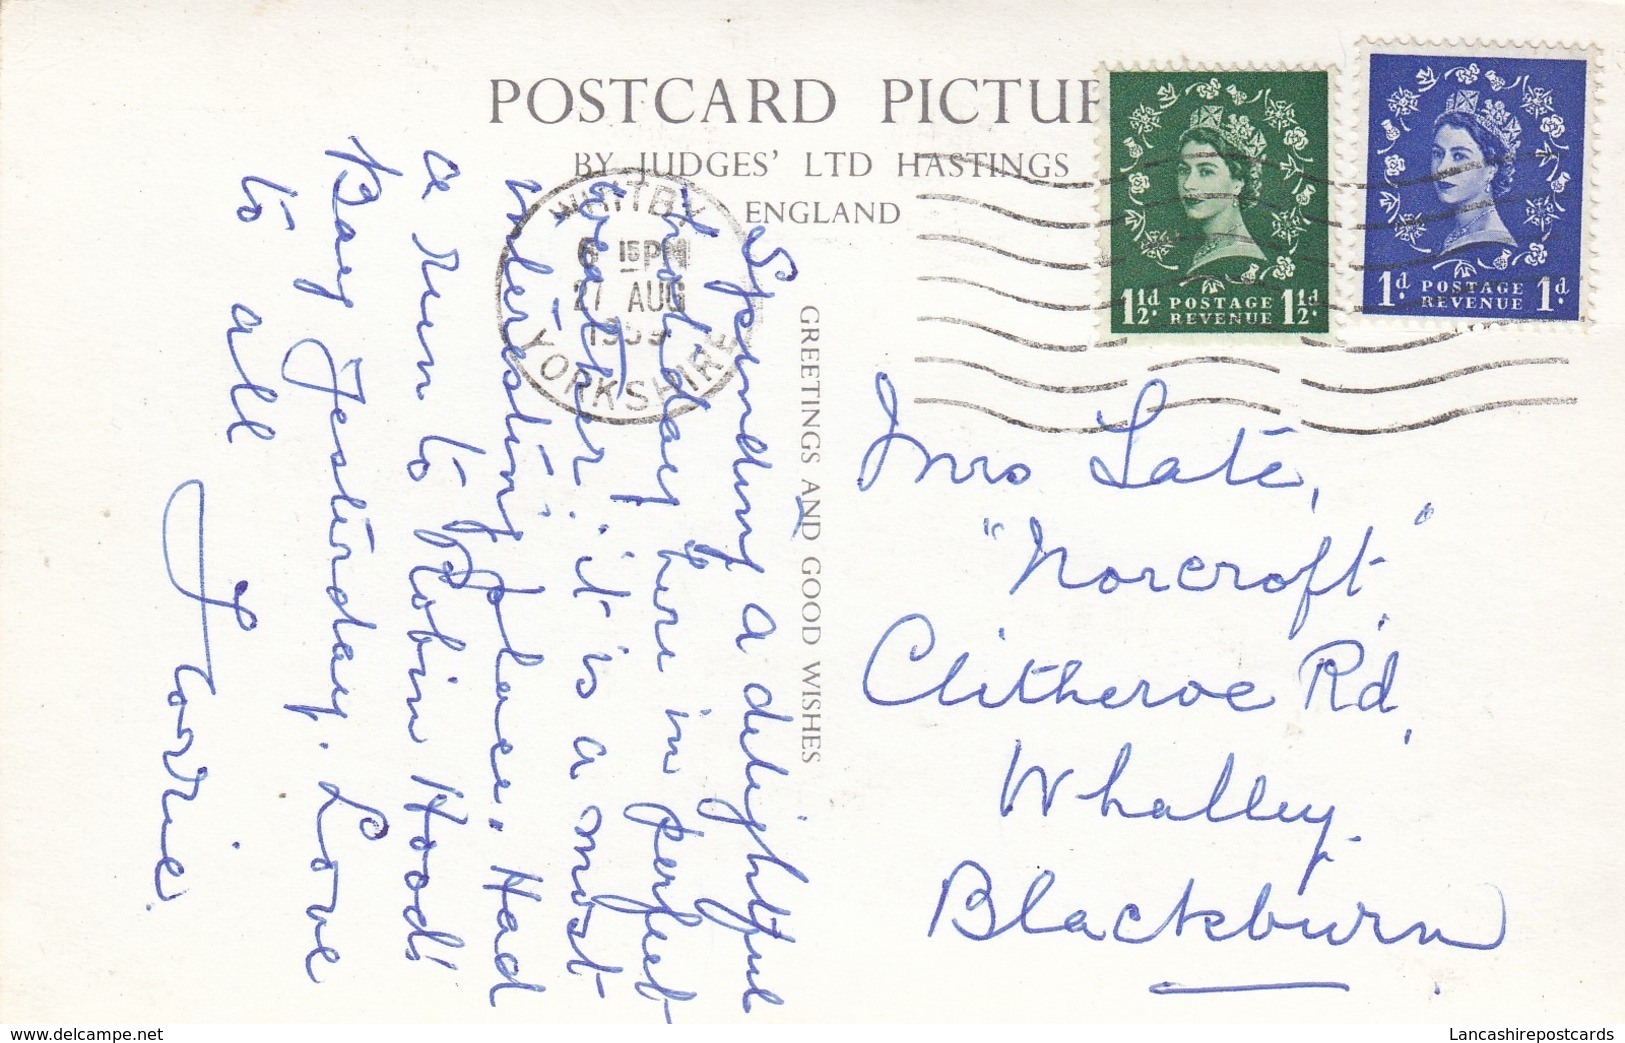 POSTCARD PICTUR
BY JUDGES' LTD HASTINGS
ENGLAND
WHITBY
6 15PM
27 AUG
YORKSHIRE
1½d POSTAGE REVENUE 1½d
1d POSTAGE REVENUE 1d
GREETINGS AND GOOD WISHES
Spending a delightful
hot day here in perfect
weather. it is a most
interesting place. Had
a run to Robin Hoods
Bay Yesterday. Love
to all
Mrs
"Norcroft"
Clitheroe Rd,
Whalley.
Blackburn
Lancashirepostcards
www.delcampe.net